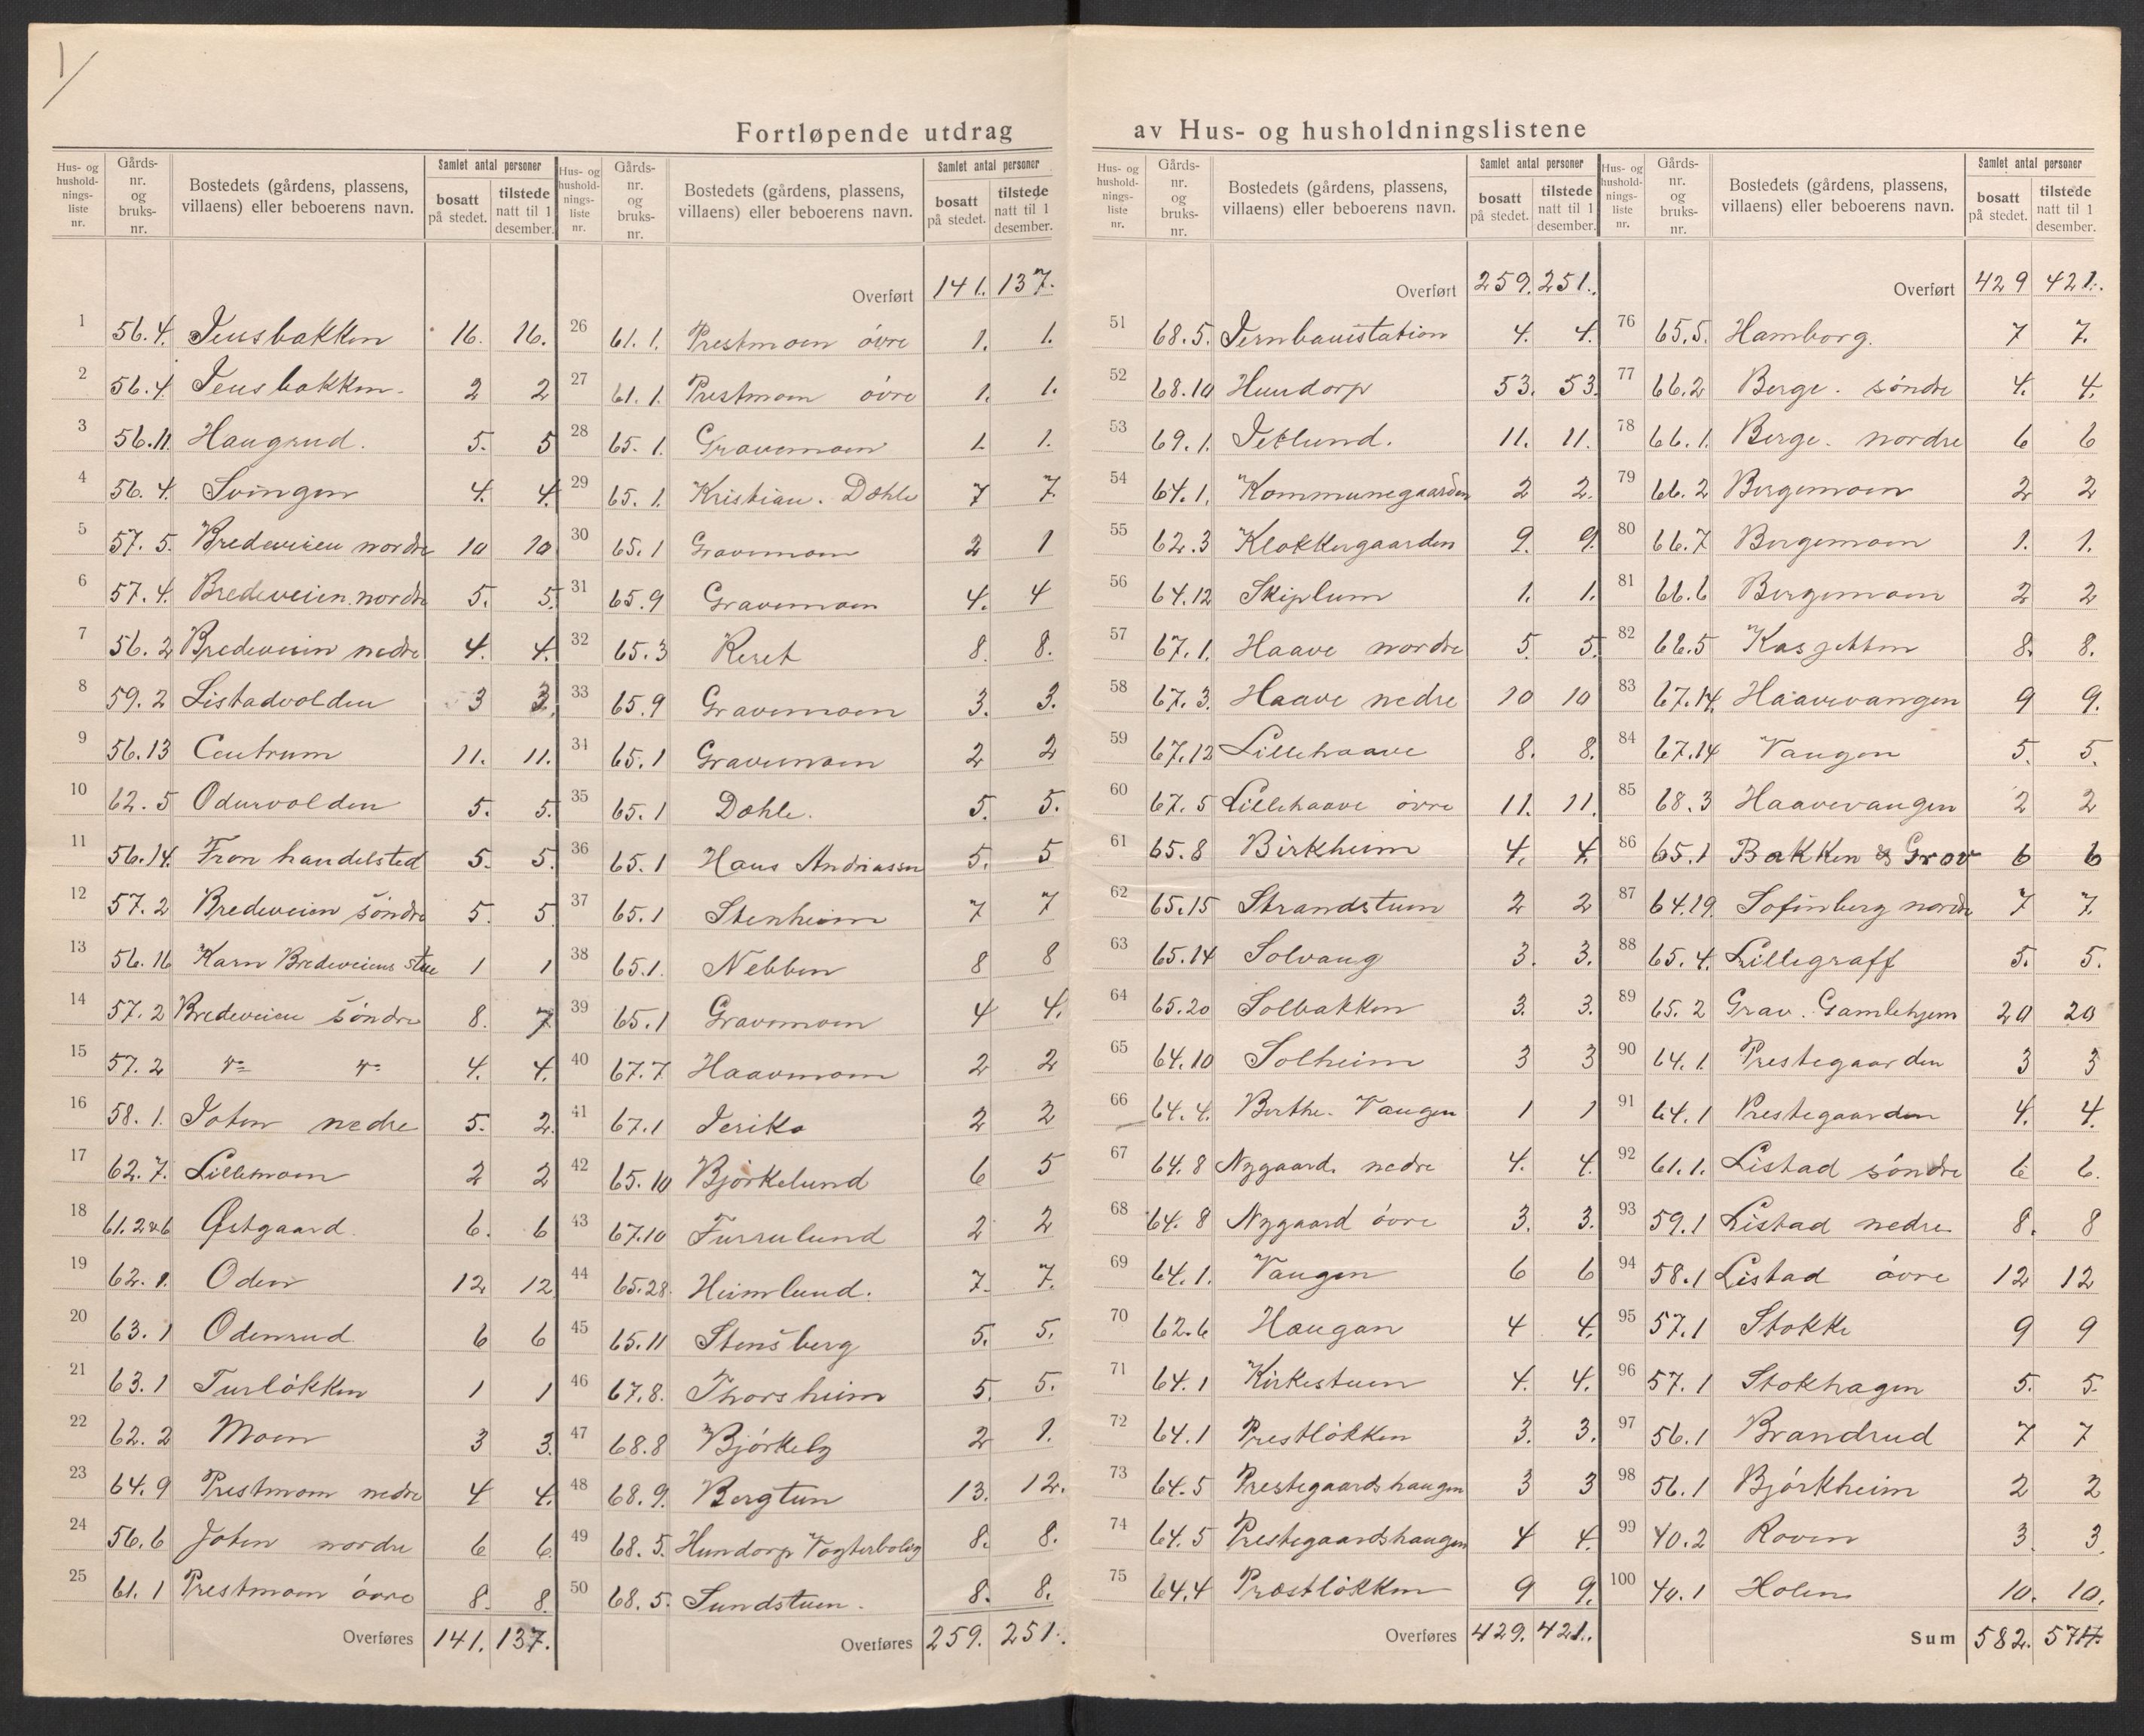 1/
Fortløpende utdrag av Hus- og husholdningslistene
Hus- og hushold-nings-liste nr. Gårds-nr. og bruks-nr. Bostedets (gårdens, plassens, villaens) eller beboerens navn. Samlet antal personer bosatt på stedet. tilstede natt til 1 desember.
1 56.4. Jensbakken 16. 16.
2 56.4. Jensbakken. 2 2
3 56.11. Haugrud. 5. 5
4 56.4. Svingen 4. 4.
5 57.5. Bredeveien nordre 10 10
6 57.4. Bredeveien nordre 5. 5.
7 56.2 Bredeveien nedre 4. 4.
8 59.2 Listadvolden 3 3.
9 56.13 Centrum 11. 11.
10 62.5 Odenvolden 5. 5.
11 56.14. Fron handelsted 5. 5.
12 57.2 Bredeveien søndre 5. 5
13 56.16 Karn Bredeveiens stue 1 1
14 57.2 Bredeveien søndre 8. 7
15 57.2 4. 4.
16 58.1. Joten nedre 5. 2.
17 62.7. Lillemoen 2 2
18 61.2&6 Østgaard. 6. 6
19 62.1. Oden 12 12
20 63.1 Odenrud 6 6
21 63.1 Turløkken 1 1
22 62.2 Moen 3 3.
23 64.9 Prestmoen nedre 4 4.
24 56.6 Joten nordre 6 6
25 61.1 Prestmoen øvre 8. 8.
Overføres 141. 137.
Hus- og hushold-nings-liste nr. Gårds-nr. og bruks-nr. Bostedets (gårdens, plassens, villaens) eller beboerens navn. Samlet antal personer bosatt på stedet. tilstede natt til 1 desember.
Overført 141. 137.
26 61.1. Prestmoen øvre 1. 1.
27 61.1. Prestmoen øvre 1. 1.
28 65.1. Gravemoen 1. 1.
29 65.1. Kristian. Dæhle 7 7.
30 65.1 Gravemoen 2 1
31 65.9 Gravemoen 4. 4
32 65.3 Reret 8. 8.
33 65.9 Gravemoen 3. 3.
34 65.1 Gravemoen 2 2
35 65.1 Dæhle. 5. 5.
36 65.1 Hans Andreassen 5. 5
37 65.1 Stenheim 7 7
38 65.1. Nebben 8 8
39 65.1 Gravemoen 4 4.
40 67.7 Haavemoen 2 2
41 67.1 Jeriko 2 2
42 65.10 Bjørkelund 6 5
43 67.10 Furrulund 2 2
44 65.28. Heimlund. 7. 7.
45 65.11 Stensberg 5. 5.
46 67.8. Thorsheim 5. 5.
47 68.8 Bjørkely 2 1.
48 68.9. Bergtun 13. 12.
49 68.5. Hundorp Vogterbolig 8. 8.
50 68.5. Sundstuen. 8. 8.
Overføres 259. 251.
Hus- og hushold-nings-liste nr. Gårds-nr. og bruks-nr. Bostedets (gårdens, plassens, villaens) eller beboerens navn. Samlet antal personer bosatt på stedet. tilstede natt til 1 desember.
Overført 259. 251.
51 68.5. Jernbanestation 4. 4.
52 68.10 Hundorp 53. 53.
53 69.1. Jetlund. 11. 11.
54 64.1. Kommunegaarden 2 2.
55 62.3 Klokkergaarden 9. 9.
56 64.12 Skiplum 1. 1.
57 67.1. Haave nordre 5. 5.
58 67.3. Haave nedre 10 10
59 67.12 Lillehaave 8. 8.
60 67.5 Lillehaave øvre 11. 11.
61 65.8 Birkheim 4. 4.
62 65.15 Strandstuen 2 2
63 65.14 Solvang 3. 3.
64 65.20 Solbakken 3. 3.
65 64.10 Solheim 3 3
66 64.4. Berthe. Vangen 1 1
67 64.8 Nygaard. nedre 4. 4.
68 64.8 Nygaard øvre 3. 3.
69 64.1. Vangen 6 6
70 62.6 Haugan 4 4.
71 64.1 Kirkestuen 4. 4.
72 64.1 Prestløkken 3. 3.
73 64.5 Prestegaardshaugen 3 3
74 64.5 Prestegaardshaugen 4 4.
75 64.4 Præstløkken 9 9.
Overføres 429. 421.
Hus- og hushold-nings-liste nr. Gårds-nr. og bruks-nr. Bostedets (gårdens, plassens, villaens) eller beboerens navn. Samlet antal personer bosatt på stedet. tilstede natt til 1 desember.
Overført 429 421.
76 65.5. Hamborg. 7 7.
77 66.2 Berge. søndre 4. 4.
78 66.1. Berge. nordre 6 6
79 66.2 Bergemoen 2 2
80 66.7 Bergemoen 1. 1.
81 66.6 Bergemoen 2 2
82 66.5 Kasjetten 8. 8.
83 67.14. Haavevangen 9 9.
84 67.14 Vangen 5. 5.
85 68.3 Haavevangen 2 2
86 65.1 Bakken & Grav 6 6
87 64.19. Sofienberg nordre 7 7.
88 65.4. Lillegraff 5. 5.
89 65.2 Grav. Gamlehjem 20 20
90 64.1. Prestegaarden 3 3
91 64.1 Prestegaarden 4. 4.
92 61.1. Listad søndre 6 6.
93 59.1 Listad nedre 8. 8
94 58.1 Listad øvre 12 12
95 57.1 Stokke 9 9
96 57.1 Stokhagen 5. 5.
97 56.1 Brandrud 7 7
98 56.1 Bjørkheim 2 2
99 40.2 Roven 3. 3.
100 40.1 Holen 10. 10.
Sum 582. 574.